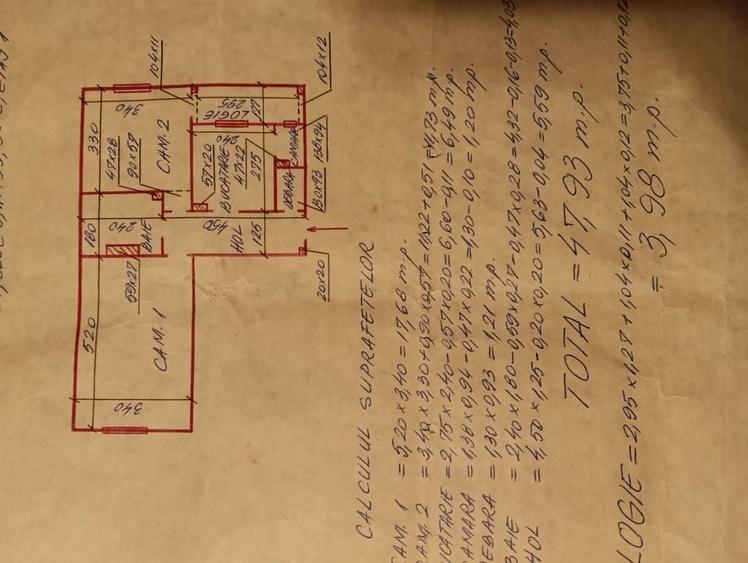 104x11
104x12
340
295
LOGIE
127
330
47x28
90x57
CAM. 2
240
57x20
BUCATARIE
47x22
275
CAMARA
DEBARA
138x94
130x93
180
240
BAIE
450
HOL
125
59x27
20x20
520
CAM. 1
340
CALCULUL SUPRAFETELOR
CAM. 1 = 5,20 x 3,40 = 17,68 m.p.
CAM. 2 = 3,40 x 3,30 + 0,90 x 0,57 = 11,22 + 0,51 = 11,73 m.p.
UCATARIE = 2,75 x 2,40 - 0,57 x 0,20 = 6,60 - 0,11 = 6,49 m.p.
CAMARA = 1,38 x 0,94 - 0,47 x 0,22 = 1,30 - 0,10 = 1,20 m.p.
DEBARA = 1,30 x 0,93 = 1,21 m.p.
BAIE = 2,40 x 1,80 - 0,59 x 0,27 - 0,47 x 0,28 = 4,32 - 0,16 - 0,13 = 4,03
HOL = 4,50 x 1,25 - 0,20 x 0,20 = 5,63 - 0,04 = 5,59 m.p.
TOTAL = 47,93 m.p.
LOGIE = 2,95 x 1,27 + 1,04 x 0,11 + 1,04 x 0,12 = 3,75 + 0,11 + 0,12
= 3,98 m.p.